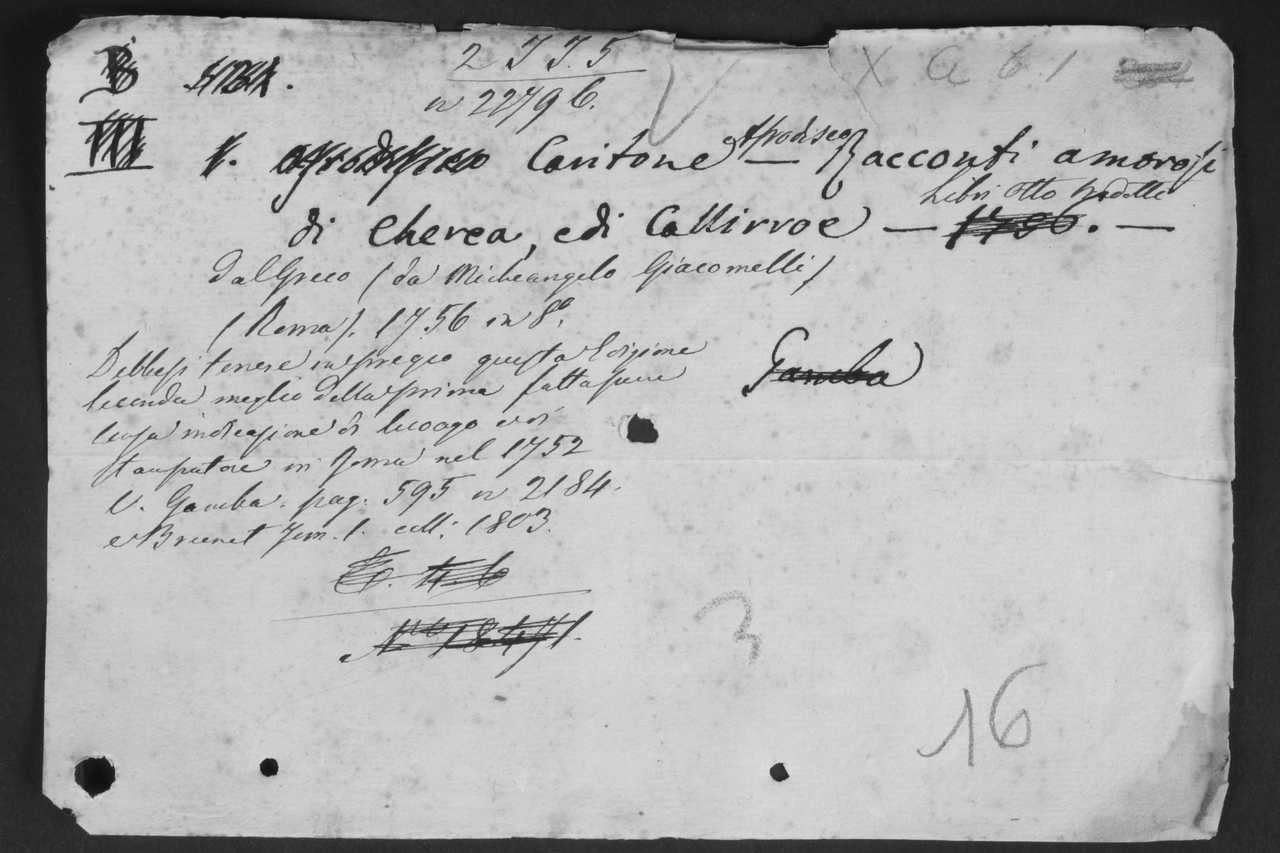 B
2 I I. 5
n 22796.
X a 6. 1
III
Caritone Afrodiseo — Racconti amorosi
di Cherea, e di Callirroe — Libri otto tradotti 1756. —
dal Greco (da Micheangelo Giacomelli)
(Roma). 1756 in 8º.
Debbesi tenere in pregio questa Edizione
seconda meglio della prima fattasene
senza indicazione di luogo e di
stampatore in Roma nel 1752
V. Gamba. pag. 595 n 2184.
e Brunet Tom. 1. coll. 1803.
Gamba
Nº 18471.
3
16